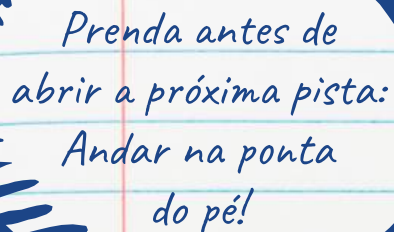 Prenda antes de
abrir a próxima pista:
Andar na ponta
do pé!